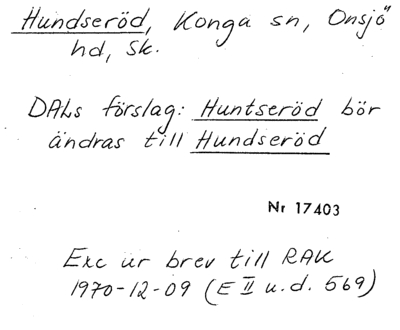 Hundseröd, Konga sn, Onsjö
hd, Sk.
DALs förslag: Huntseröd bör
ändras till Hundseröd
Nr 17403
Exc ur brev till RAK
1970-12-09 (E II u.d. 569)